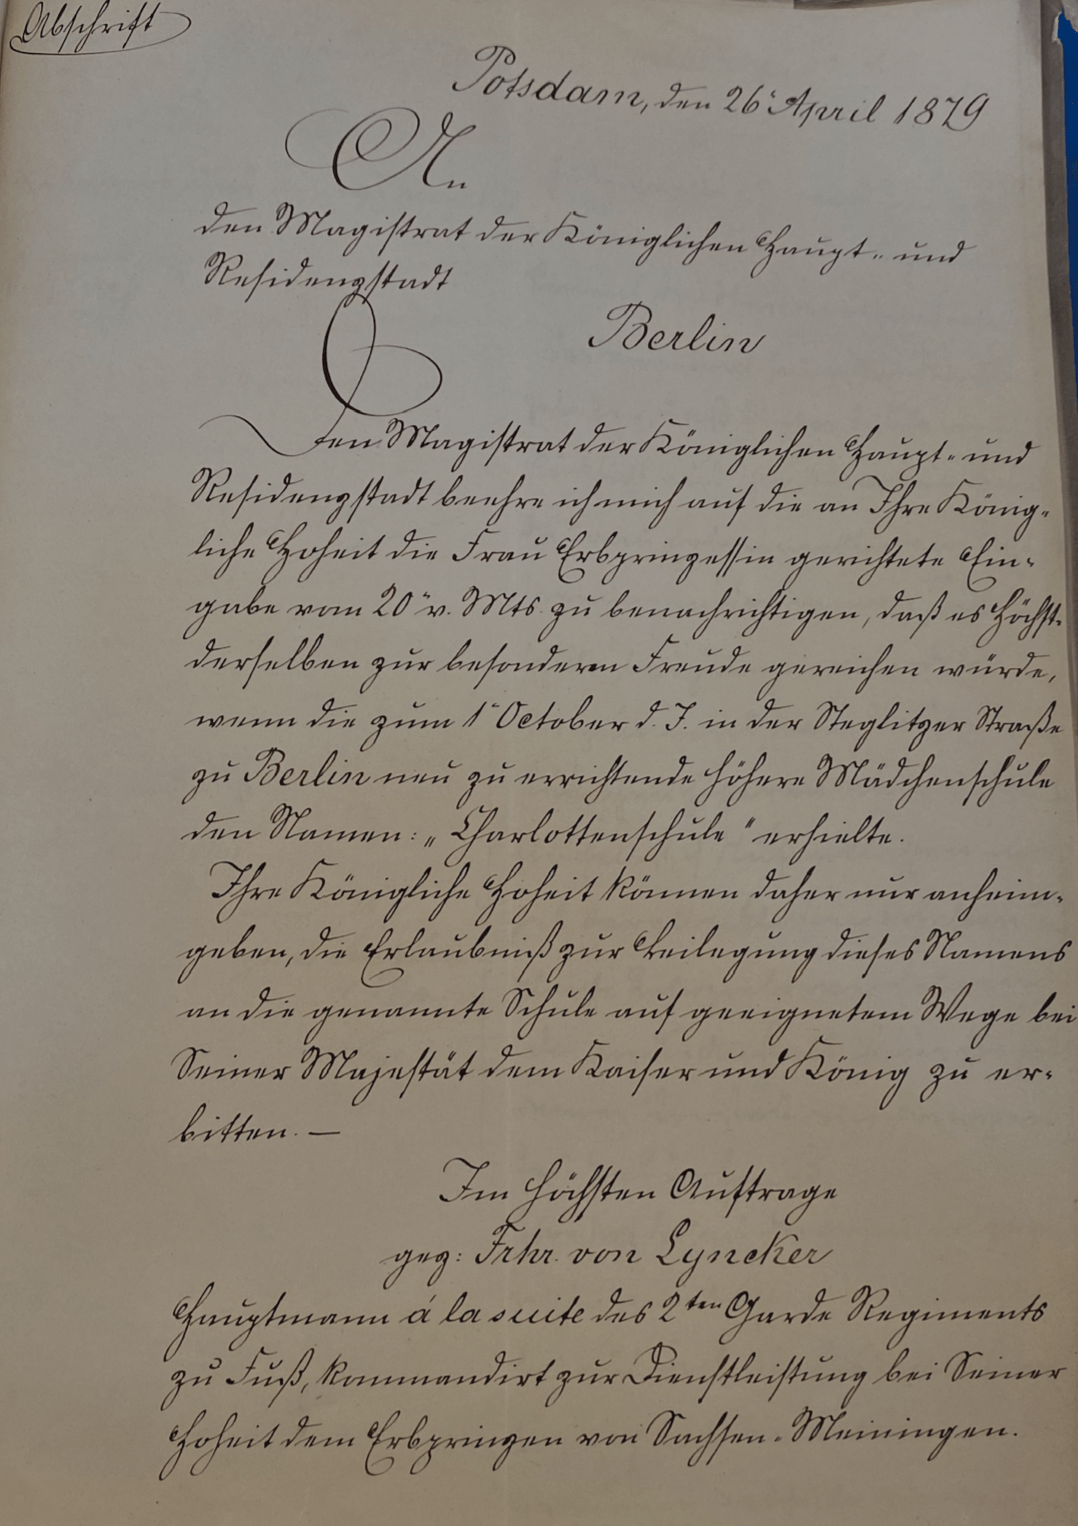 Abschrift
Potsdam, den 26t April 1879
An
den Magistrat der Königlichen Haupt- und
Residenzstadt
Berlin
Den Magistrat der Königlichen Haupt- und
Residenzstadt beehre ich mich auf die an Ihre König-
liche Hoheit die Frau Erbprinzessin gerichtete Ein-
gabe vom 20t v. Mts. zu benachrichtigen, daß es Höchst-
derselben zur besonderen Freude gereichen würde,
wenn die zum 1t October d. J. in der Steglitzer Straße
zu Berlin neu zu errichtende höhere Mädchenschule
den Namen: „Charlottenschule" erhielte.
Ihre Königliche Hoheit können daher nur anheim-
geben, die Erlaubniß zur Beilegung dieses Namens
an die genannte Schule auf geeignetem Wege bei
Seiner Majestät dem Kaiser und König zu er-
bitten. —
Im Höchsten Auftrage
gez: Frhr. von Lyncker
Hauptmann á la suite des 2ten Garde Regiments
zu Fuß, kommandirt zur Dienstleistung bei Seiner
Hoheit dem Erbprinzen von Sachsen-Meiningen.